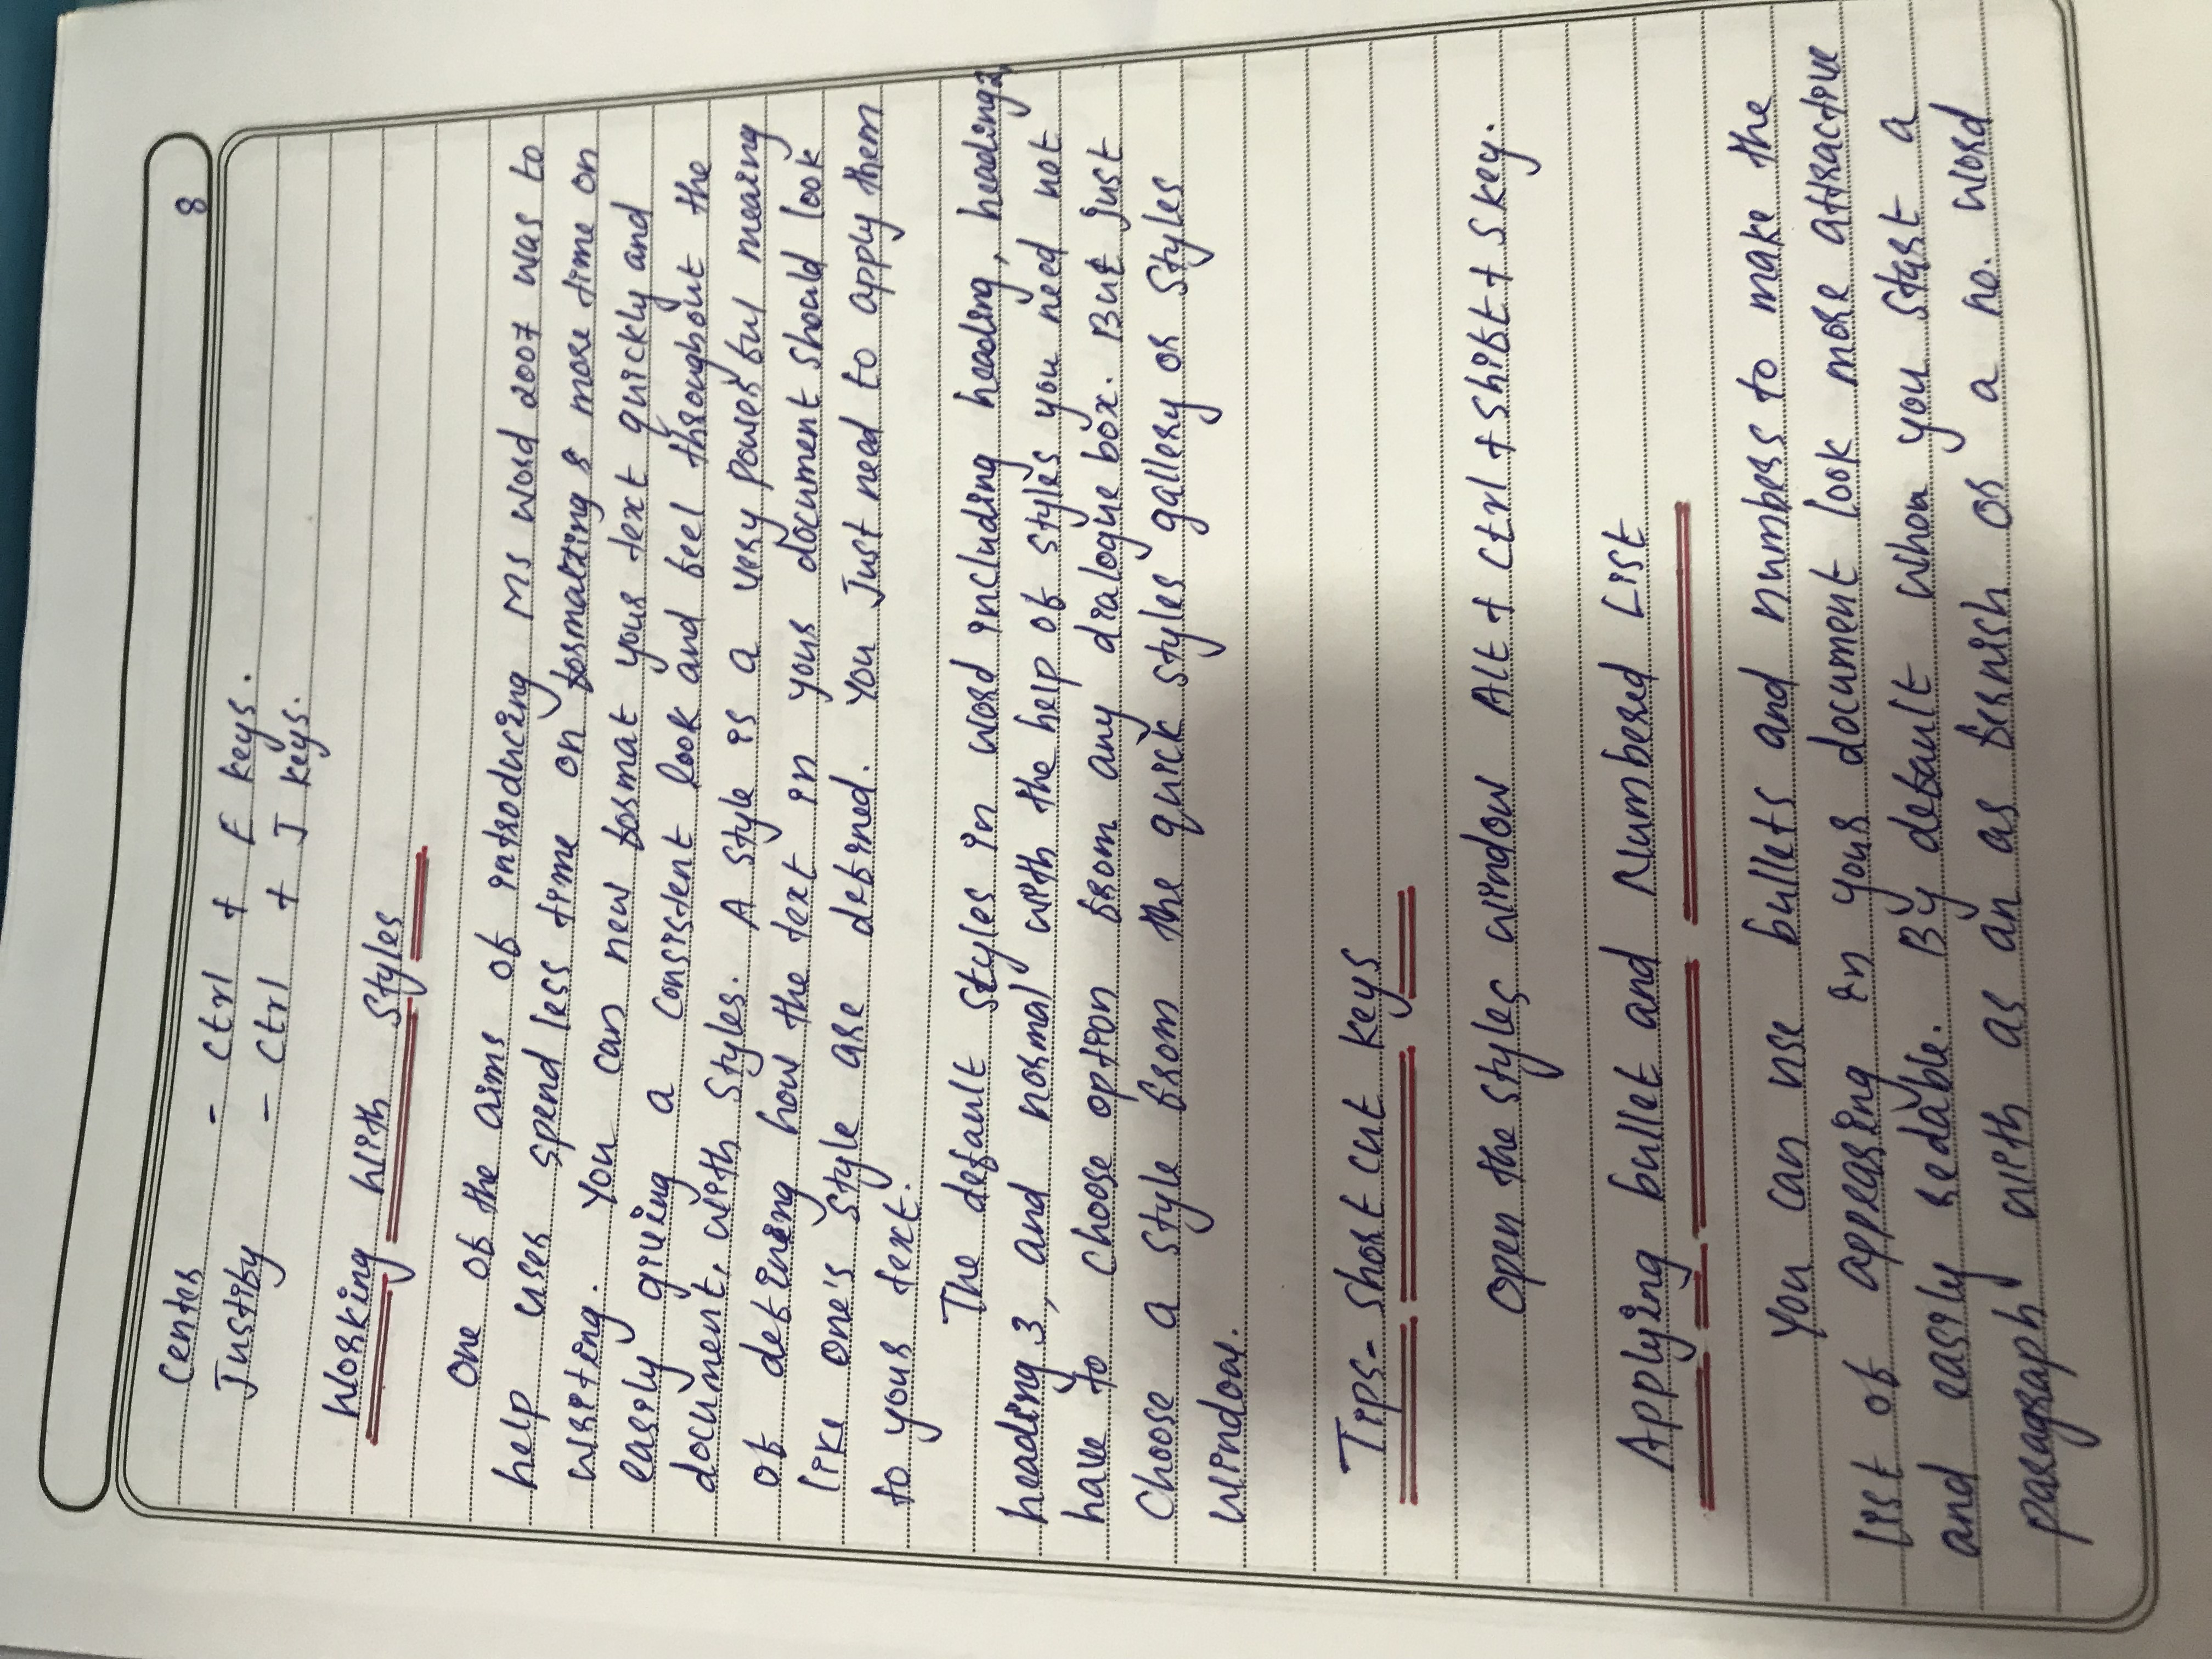 8
Center - Ctrl + E keys.
Justify - Ctrl + J keys.
Working With Styles
One of the aims of introducing MS Word 2007 was to
help user spend less time on formatting & more time on
writing. You can new format your text quickly and
easily giving a consistent look and feel throughout the
document, with Styles. A style is a very powerful meaing
of defining how the text in your document should look
like one's style are defined. You Just need to apply them
to your text.
The default styles in word including heading, heading 2,
heading 3, and normal with the help of styles you need not
have to choose option from any dialogue box. But just
Choose a style from the quick styles gallery or Styles
window.
Tips- Short cut keys
Open the styles window Alt + Ctrl + Shift + S key.
Applying bullet and Numbered List
You can use bullets and numbers to make the
list of appearing in your document look more attractive
and easily redable. By default when you start a
paragraph with as an as fernish or a no. word